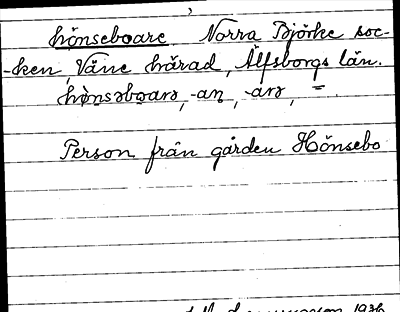 hönseboare Norra Björke soc-
-ken, Väne härad, Älfsborgs län.
hònsəbꙍarə, -an, -arə, =.
Person från gården Hönsebo
1936